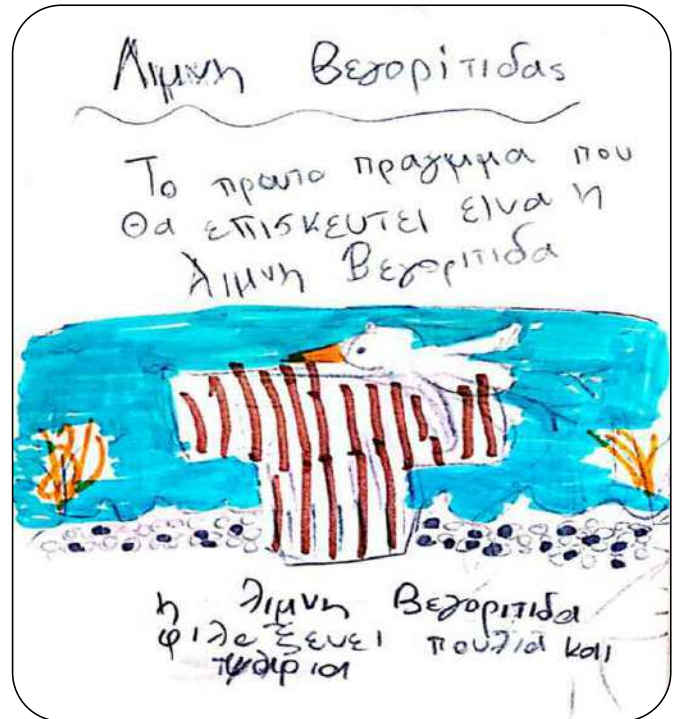 Λιμνη Βεγορίτιδας
Το πρωτο πραγμμα που
Θα επισκευτει ειναι η
Λιμνη Βεγοριτιδα
η λιμνη Βεγοριτιδα
φιλοξενει πουλια και
ψαρια